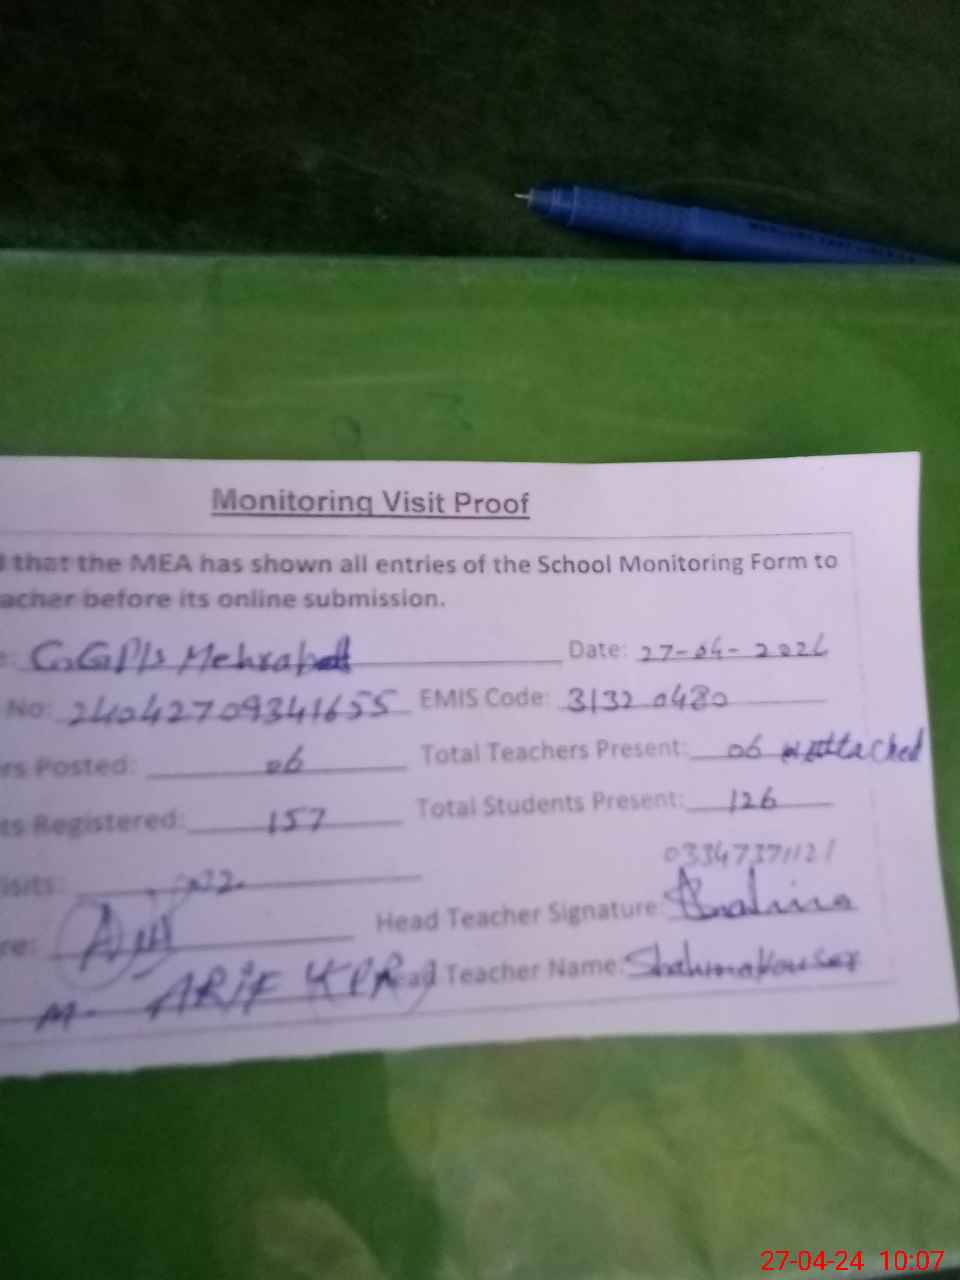 Monitoring Visit Proof
that the MEA has shown all entries of the School Monitoring Form to
acher before its online submission.
Date: 27-04-2024
No: 24042709341655 EMIS Code: 31320480
rs Posted: 06 Total Teachers Present: 06
ts Registered: 157 Total Students Present: 126
isits:
03347371121
re: Head Teacher Signature:
M. ARIF ead Teacher Name:
27-04-24 10:07